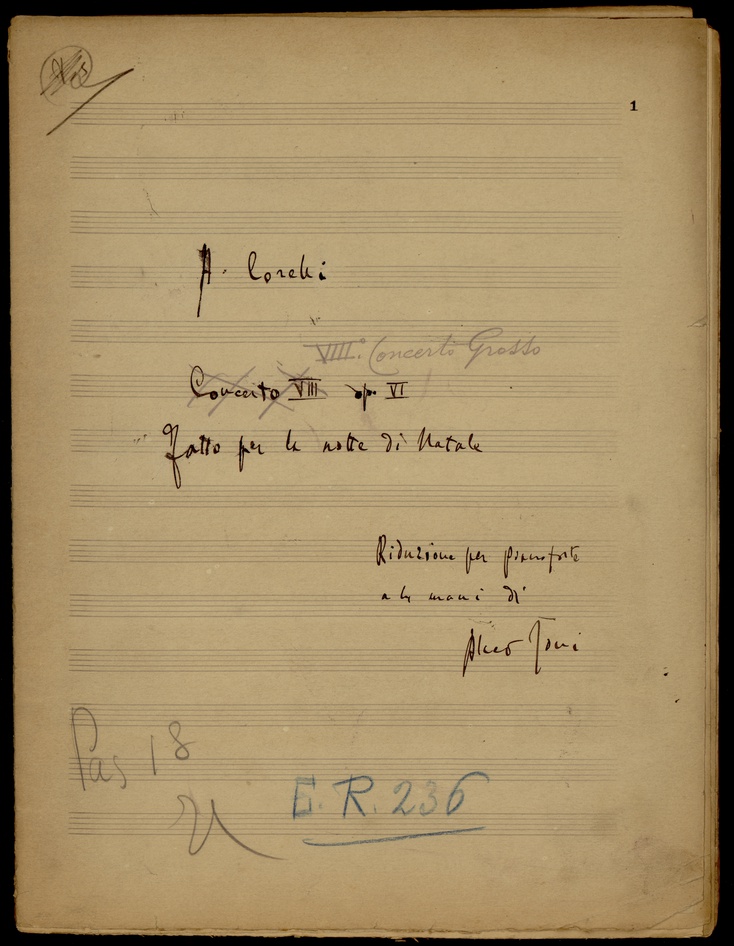 1
A. Corelli
VIIII.° Concerto Grosso
Concerto VIII op. VI
Fatto per la notte di Natale
Riduzione per pianoforte
a 4 mani di
Alceo Toni
Pas 18
E. R. 236